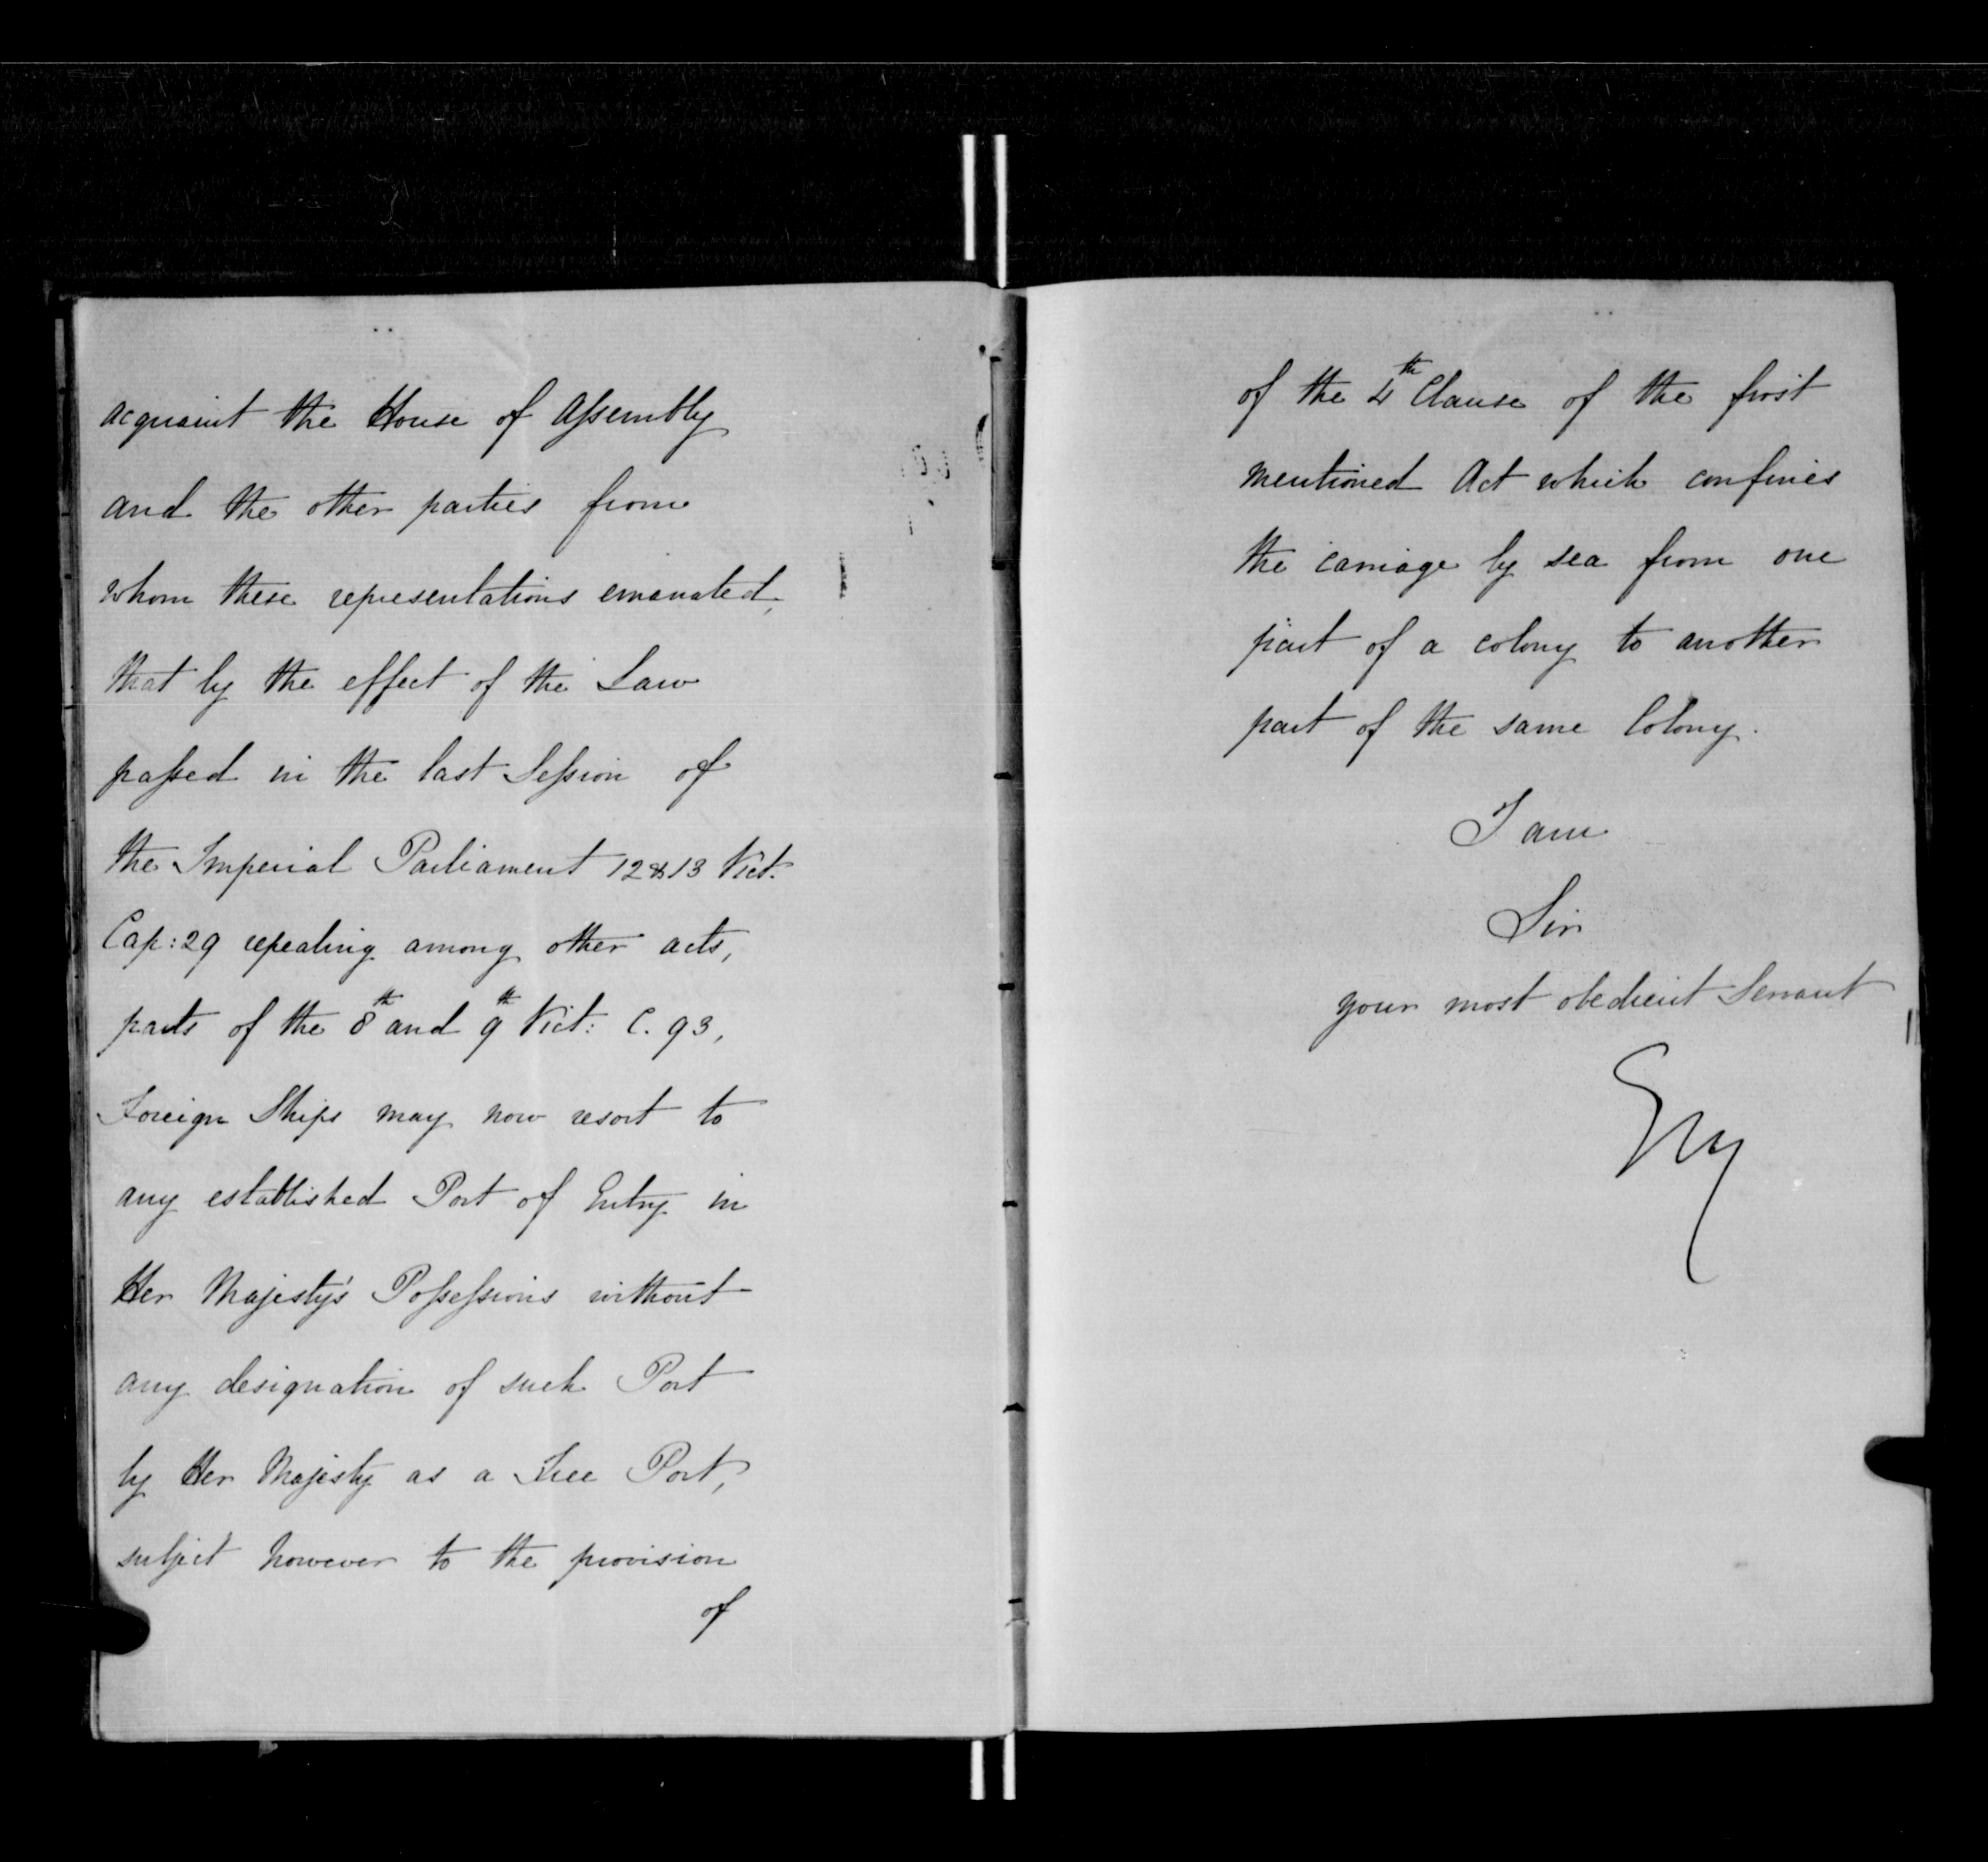 acquaint the House of Assembly
and the other parties from
whom these representations emanated,
that by the effect of the Law
passed in the last Session of
the Imperial Parliament 12 & 13 Vict.
Cap: 29 repealing among other acts,
parts of the 8th and 9th Vict: C. 93,
Foreign Ships may now resort to
any established Port of Entry in
Her Majesty's Possessions without
any designation of such Port
by Her Majesty as a Free Port,
subject however to the provision
of
of the 4th Clause of the first
mentioned Act which confines
the carriage by sea from one
part of a colony to another
part of the same Colony.
I am
Sir
your most obedient Servant
Grey